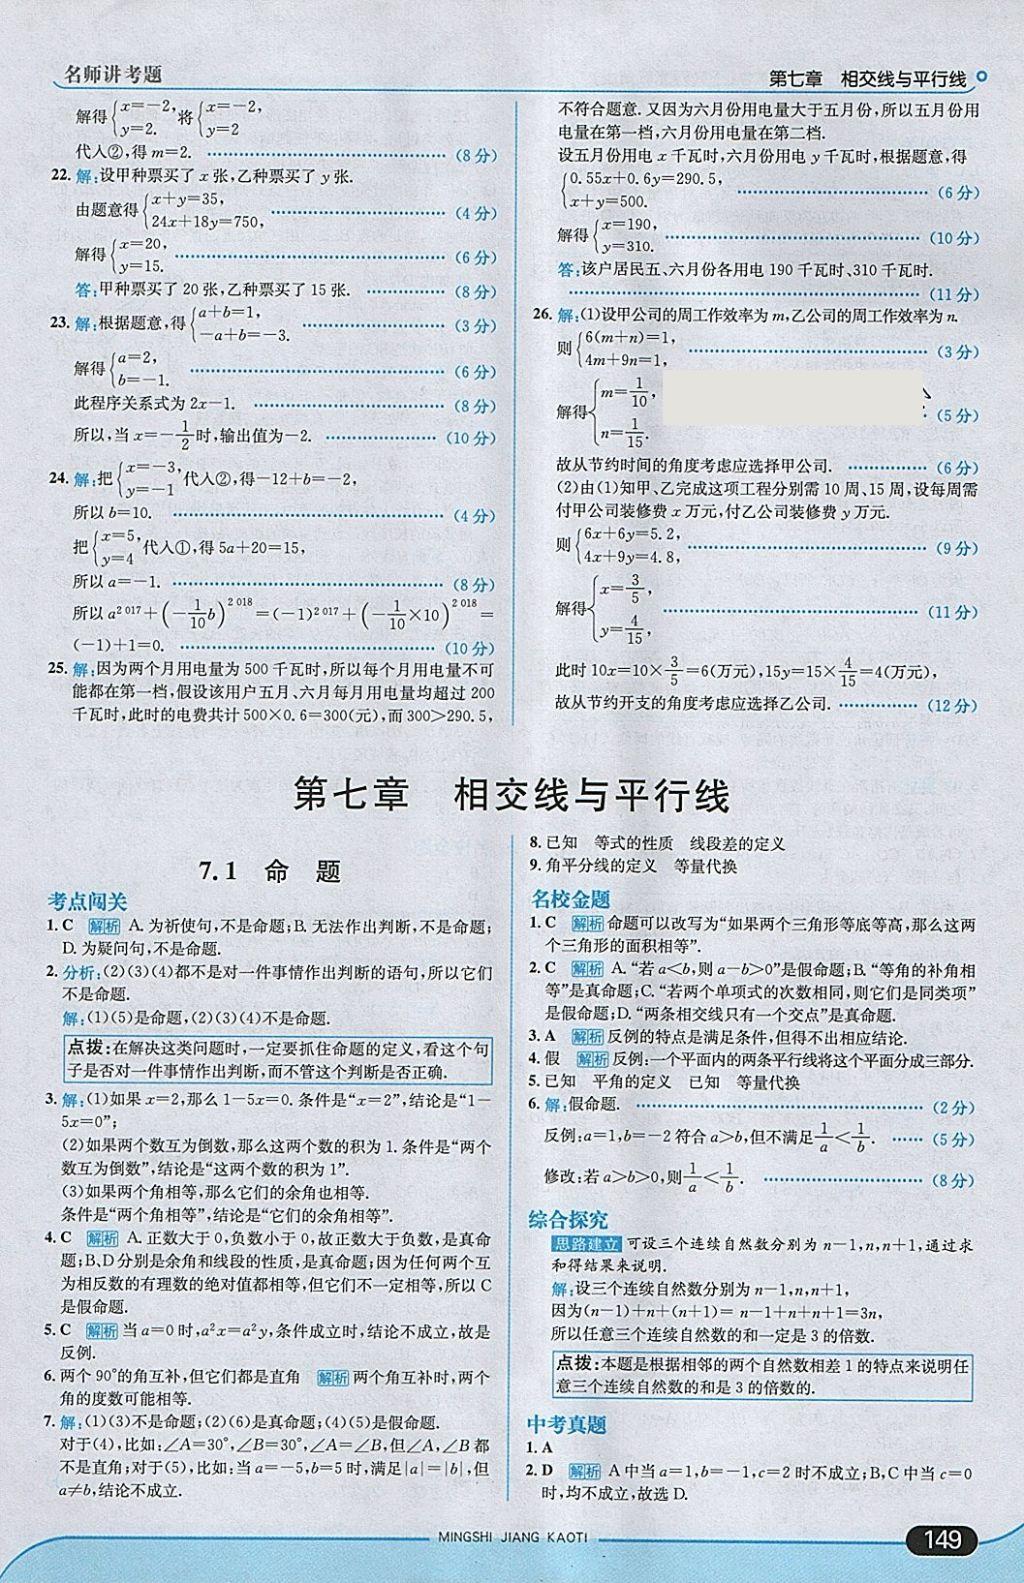 名师讲考题
第七章 相交线与平行线
解得{x=-2, y=2. 将{x=-2, y=2
代入②,得m=2. (8分)
22.解:设甲种票买了x张,乙种票买了y张.
由题意得{x+y=35, 24x+18y=750, (4分)
解得{x=20, y=15. (6分)
答:甲种票买了20张,乙种票买了15张. (8分)
23.解:根据题意,得{a+b=1, -a+b=-3. (3分)
解得{a=2, b=-1. (6分)
此程序关系式为2x-1. (8分)
所以,当x=-1/2时,输出值为-2. (10分)
24.解:把{x=-3, y=-1代入②,得-12+b=-2,
所以b=10. (4分)
把{x=5, y=4代入①,得5a+20=15,
所以a=-1. (8分)
所以a^2 017+(-1/10 b)^2 018=(-1)^2 017+(-1/10×10)^2 018=
(-1)+1=0. (10分)
25.解:因为两个月用电量为500千瓦时,所以每个月用电量不可
能都在第一档,假设该用户五月、六月每月用电量均超过200
千瓦时,此时的电费共计500×0.6=300(元),而300>290.5,
不符合题意.又因为六月份用电量大于五月份,所以五月份用
电量在第一档,六月份用电量在第二档.
设五月份用电x千瓦时,六月份用电y千瓦时,根据题意,得
{0.55x+0.6y=290.5, x+y=500. (6分)
解得{x=190, y=310. (10分)
答:该户居民五、六月份各用电190千瓦时、310千瓦时.
(11分)
26.解:(1)设甲公司的周工作效率为m,乙公司的周工作效率为n.
则{6(m+n)=1, 4m+9n=1, (3分)
解得{m=1/10, n=1/15. (5分)
故从节约时间的角度考虑应选择甲公司. (6分)
(2)由(1)知甲、乙完成这项工程分别需10周、15周,设每周需
付甲公司装修费x万元,付乙公司装修费y万元.
则{6x+6y=5.2, 4x+9y=4.8, (9分)
解得{x=3/5, y=4/15, (11分)
此时10x=10×3/5=6(万元),15y=15×4/15=4(万元),
故从节约开支的角度考虑应选择乙公司. (12分)
第七章 相交线与平行线
7.1 命 题
考点闯关
1.C 解析 A.为祈使句,不是命题;B.无法作出判断,不是命题;
D.为疑问句,不是命题.
2.分析:(2)(3)(4)都不是对一件事情作出判断的语句,所以它们
不是命题.
解:(1)(5)是命题,(2)(3)(4)不是命题.
点拨:在解决这类问题时,一定要抓住命题的定义,看这个句
子是否对一件事情作出判断,而不管这个判断是否正确.
3.解:(1)如果x=2,那么1-5x=0.条件是“x=2”,结论是“1-
5x=0”;
(2)如果两个数互为倒数,那么这两个数的积为1.条件是“两个
数互为倒数”,结论是“这两个数的积为1”.
(3)如果两个角相等,那么它们的余角也相等.
条件是“两个角相等”,结论是“它们的余角相等”.
4.C 解析 A.正数大于0,负数小于0,故正数大于负数,是真命
题;B、D分别是余角和线段的性质,是真命题;因为任何两个互
为相反数的有理数的绝对值都相等,但它们不一定相等,所以C
是假命题.
5.C 解析 当a=0时,a²x=a²y,条件成立时,结论不成立,故是
反例.
6.两个90°的角互补,但它们都是直角 解析 两个角互补时,两个
角的度数可能相等.
7.解:(1)(3)不是命题;(2)(6)是真命题;(4)(5)是假命题.
对于(4),比如:∠A=30°,∠B=30°,∠A=∠B,但∠A,∠B都
不是直角;对于(5),比如:当a=-5,b=5时,满足|a|=|b|,但
a≠b,结论不成立.
8.已知 等式的性质 线段差的定义
9.角平分线的定义 等量代换
名校金题
1.C 解析 命题可以改写为“如果两个三角形等底等高,那么这两
个三角形的面积相等”.
2.C 解析 A.“若a<b,则a-b>0”是假命题;B.“等角的补角相
等”是真命题;C.“若两个单项式的次数相同,则它们是同类项”
是假命题;D.“两条相交线只有一个交点”是真命题.
3.A 解析 反例的特点是满足条件,但得不出相应结论.
4.假 解析 反例:一个平面内的两条平行线将这个平面分成三部分.
5.已知 平角的定义 已知 等量代换
6.解:假命题. (2分)
反例:a=1,b=-2符合a>b,但不满足1/a<1/b. (5分)
修改:若a>b>0,则1/a<1/b. (8分)
综合探究
思路建立 可设三个连续自然数分别为n-1,n,n+1,通过求
和得结果来说明.
解:设三个连续自然数分别为n-1,n,n+1,
因为(n-1)+n+(n+1)=n-1+n+n+1=3n,
所以任意三个连续自然数的和一定是3的倍数.
点拨:本题是根据相邻的两个自然数相差1的特点来说明任
意三个连续自然数的和是3的倍数的.
中考真题
1.A
2.D 解析 A中当a=1,b=-1,c=2时不成立;B,C中当c=0
时,均不成立,故选D.
MINGSHI JIANG KAOTI
149